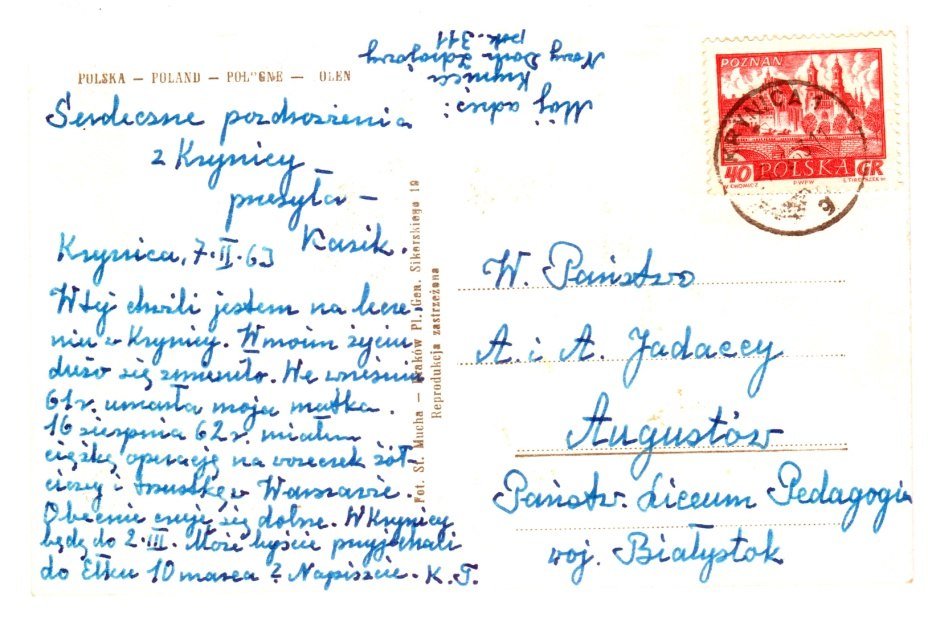 POLSKA — POLAND — POLOGNE — OLEN
Mój adres:
Krynica
Nowy Dom Zdrojowy
pok. 311
Serdeczne pozdrowienia
z Krynicy
przesyła —
Kazik.
Krynica, 7.II.63
W tej chwili jestem na lecze-
niu w Krynicy. W moim życiu
dużo się zmieniło. We wrześniu
61 r. umarła moja matka.
16 sierpnia 62 r. miałem
ciężką operację na woreczek żół-
ciowy i trzustkę w Warszawie.
Obecnie czuję się dobrze. W Krynicy
będę do 2.III. Może byście przyjechali
do Ełku 10 marca? Napiszcie. K. T.
Fot. St. Mucha — Kraków Pl. Gen. Sikorskiego 19
Reprodukcja zastrzeżona
POZNAŃ
40 POLSKA GR
PWPW
KRYNICA 1
g
W. Państwo
A. i A. Jadaccy
Augustów
Państw. Liceum Pedagogiczn
woj. Białystok